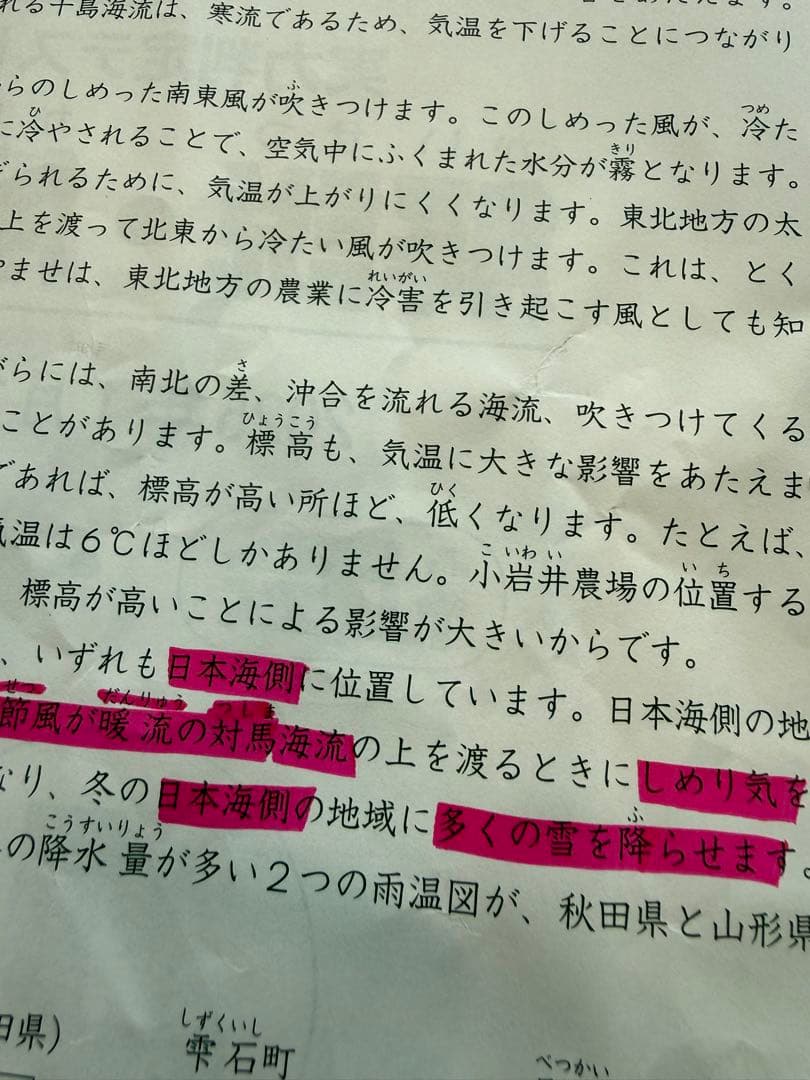 れる千島海流は、寒流であるため、気温を下げることにつながり
らのしめった南東風が吹きつけます。このしめった風が、冷た
に冷やされることで、空気中にふくまれた水分が霧となります。
げられるために、気温が上がりにくくなります。東北地方の太
上を渡って北東から冷たい風が吹きつけます。これは、とく
やませは、東北地方の農業に冷害を引き起こす風としても知
がらには、南北の差、沖合を流れる海流、吹きつけてくる
ことがあります。標高も、気温に大きな影響をあたえま
であれば、標高が高い所ほど、低くなります。たとえば、
気温は6℃ほどしかありません。小岩井農場の位置する
標高が高いことによる影響が大きいからです。
、いずれも日本海側に位置しています。日本海側の地
節風が暖流の対馬海流の上を渡るときにしめり気を
なり、冬の日本海側の地域に多くの雪を降らせます。
の降水量が多い2つの雨温図が、秋田県と山形県
田県)
しずくいし
雫石町
べつかい